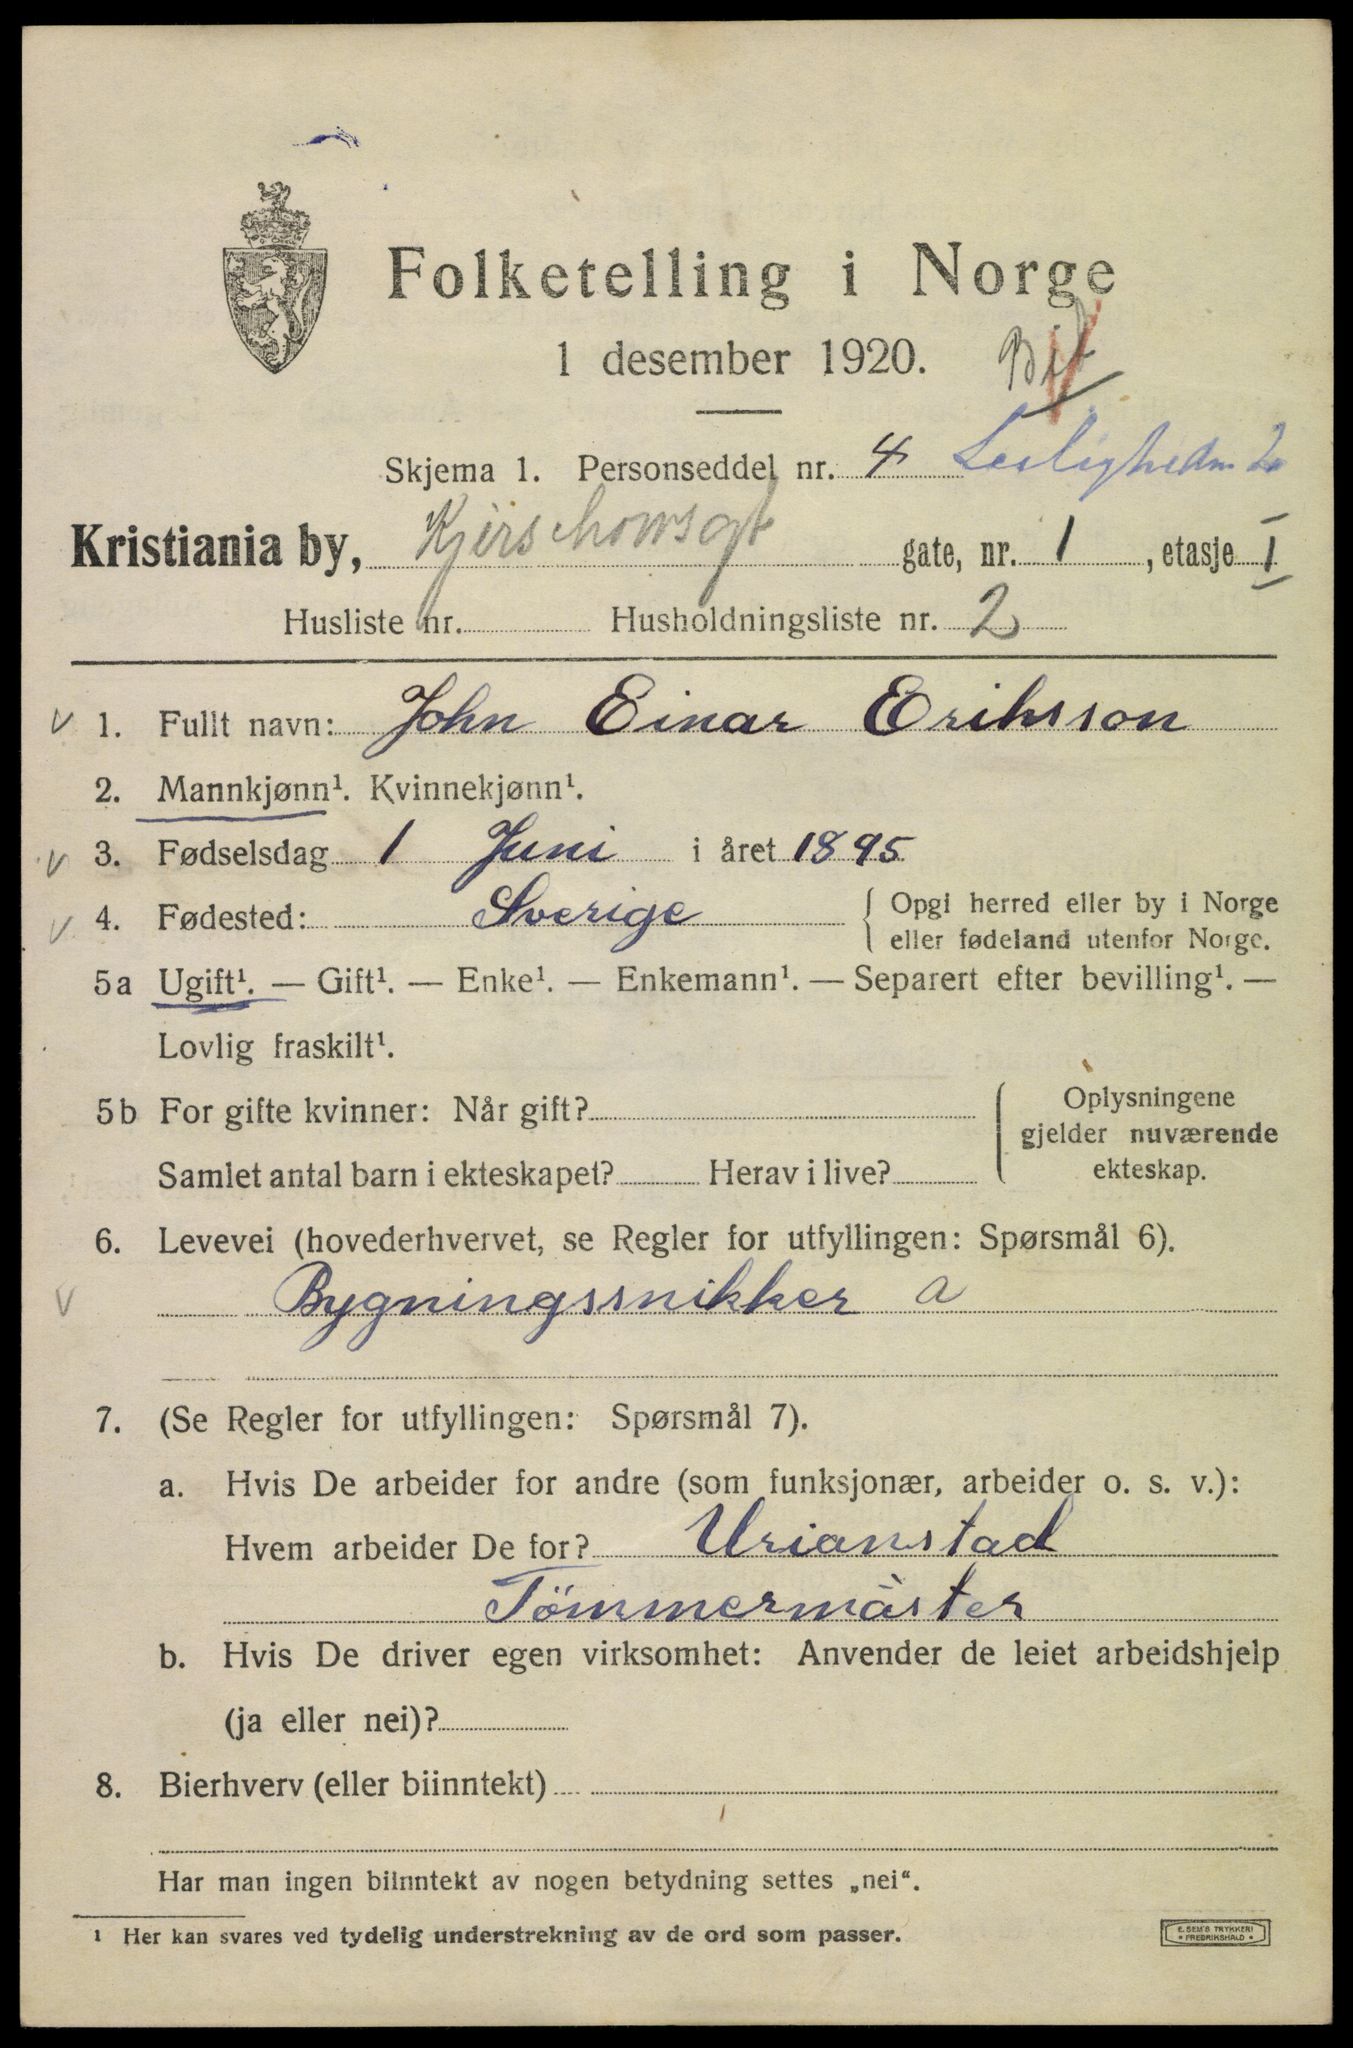 Folketelling i Norge
1 desember 1920.
Skjema 1. Personseddel nr. 4
Kristiania by, Kjerschowsgt gate, nr. 1, etasje I
Husliste nr. Husholdningsliste nr. 2
1. Fullt navn: John Einar Eriksson
2. Mannkjønn¹. Kvinnekjønn¹.
3. Fødselsdag 1 Juni i året 1895
4. Fødested: Sverige { Opgi herred eller by i Norge
eller fødeland utenfor Norge.
5a Ugift¹. — Gift¹. — Enke¹. — Enkemann¹. — Separert efter bevilling¹. —
Lovlig fraskilt¹.
5b For gifte kvinner: Når gift? { Oplysningene
gjelder nuværende
Samlet antal barn i ekteskapet? Herav i live? ekteskap.
6. Levevei (hovederhvervet, se Regler for utfyllingen: Spørsmål 6).
Bygningssnikker a
7. (Se Regler for utfyllingen: Spørsmål 7).
a. Hvis De arbeider for andre (som funksjonær, arbeider o. s. v.):
Hvem arbeider De for? Urianstad
Tömmermäster
b. Hvis De driver egen virksomhet: Anvender de leiet arbeidshjelp
(ja eller nei)?
8. Bierhverv (eller biinntekt)
Har man ingen biinntekt av nogen betydning settes „nei".
¹ Her kan svares ved tydelig understrekning av de ord som passer.
E. SEM'S TRYKKERI
* FREDRIKSHALD *